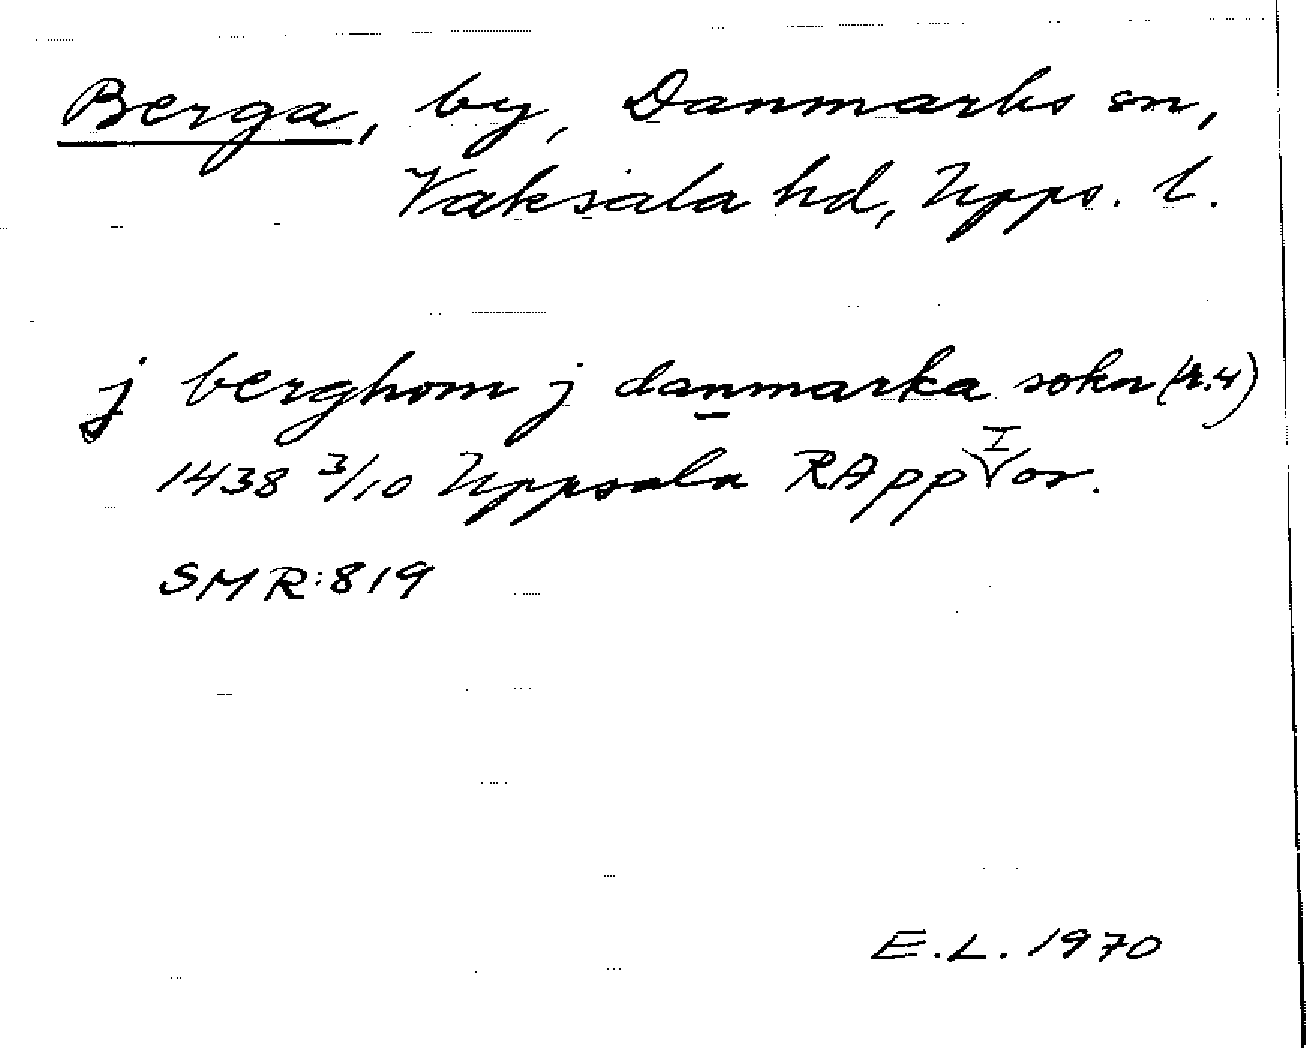 Berga, by, Danmarks sn,
Vaksala hd, Upps. l.
j berghom j danmarka sokn (r. 4)
1438 3/10 Uppsala RApp I or.
SMR: 819
E.L. 1970